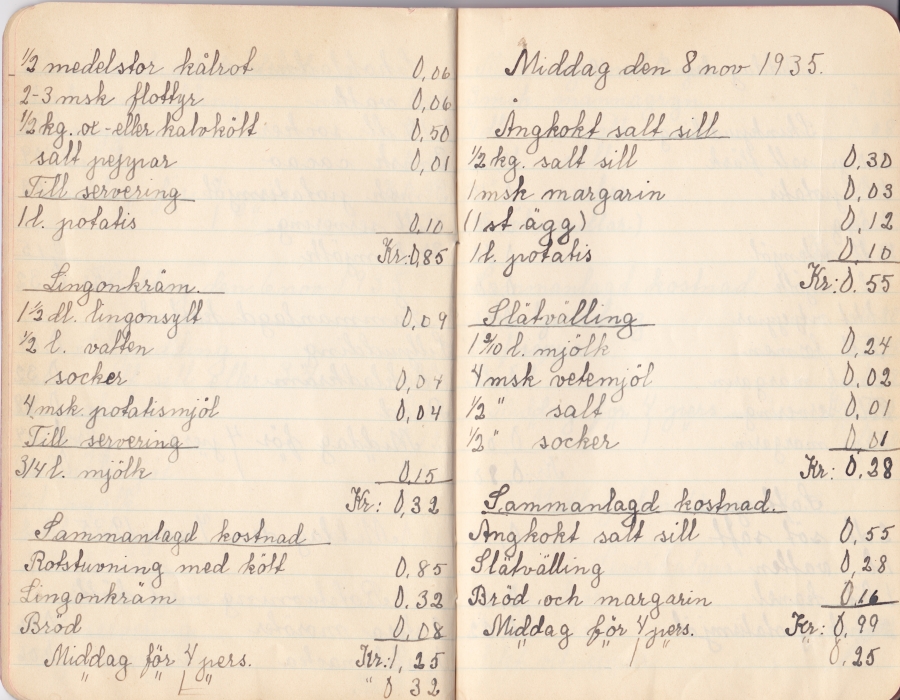 1/2 medelstor kålrot 0,06
2-3 msk flottyr 0,06
1/2 kg. ox- eller kalvkött 0,50
salt peppar 0,01
Till servering
1 l. potatis 0,10
Kr: 0,85
Lingonkräm.
1 1/2 dl. lingonsylt 0,09
1/2 l. vatten
socker 0,04
4 msk. potatismjöl 0,04
Till servering
3/4 l. mjölk 0,15
Kr: 0,32
Sammanlagd kostnad
Rotstuvning med kött 0,85
Lingonkräm 0,32
Bröd 0,08
Middag för 4 pers. Kr: 1,25
" " 1 " " 0 32
Middag den 8 nov 1935.
Ångkokt salt sill
1/2 kg. salt sill 0,30
1 msk margarin 0,03
(1 st ägg) 0,12
1 l. potatis 0,10
Kr: 0,55
Slätvälling
l. mjölk 0,24
4 msk vetemjöl 0,02
1/2 " salt 0,01
1/2 " socker 0,01
Kr: 0,28
Sammanlagd kostnad.
Ångkokt salt sill 0,55
Slätvälling 0,28
Bröd och margarin 0,16
Middag för 4 pers. Kr: 0,99
" " 1 " 0,25